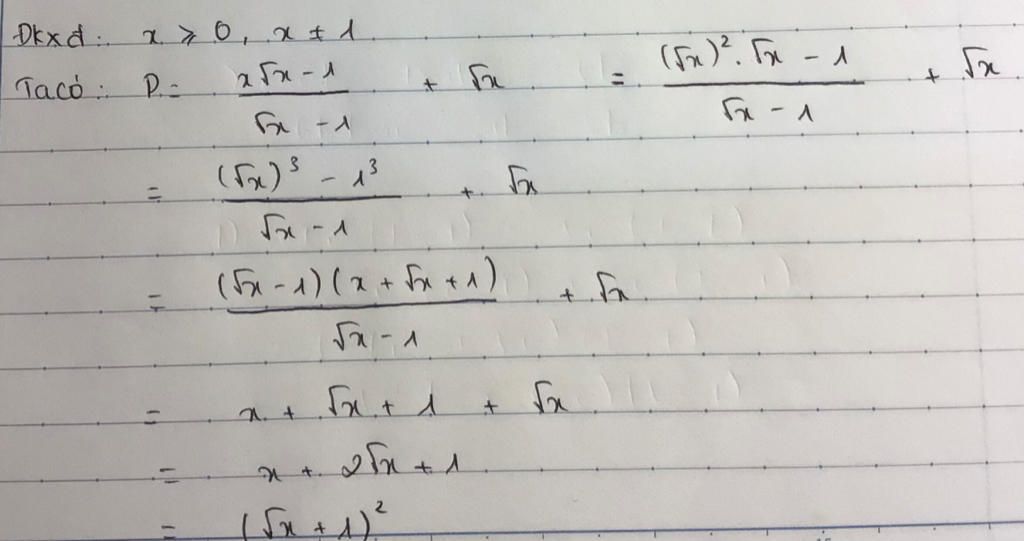 Đkxđ: x ⩾ 0, x ≠ 1
Ta có: P = (x√x - 1)/(√x - 1) + √x = ((√x)².√x - 1)/(√x - 1) + √x
= ((√x)³ - 1³)/(√x - 1) + √x
= ((√x - 1)(x + √x + 1))/(√x - 1) + √x
= x + √x + 1 + √x
= x + 2√x + 1
= (√x + 1)²